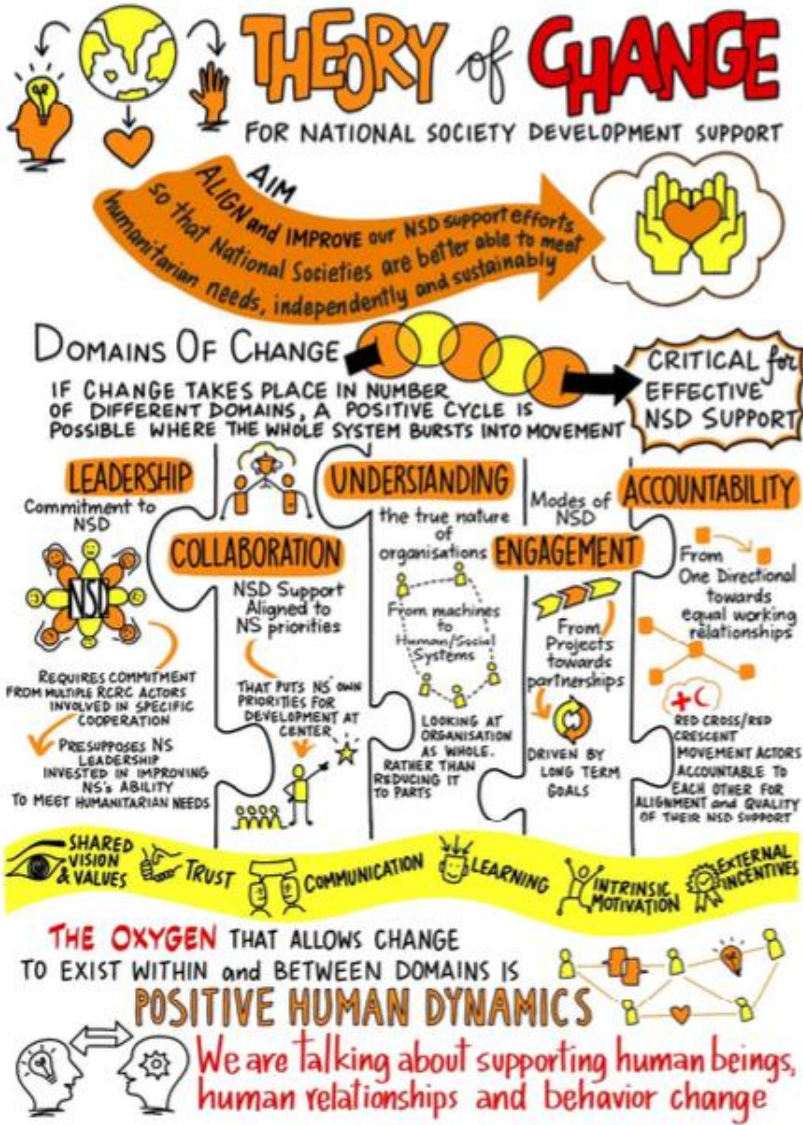 THEORY of CHANGE
FOR NATIONAL SOCIETY DEVELOPMENT SUPPORT
AIM
ALIGN and IMPROVE our NSD support efforts
so that National Societies are better able to meet
humanitarian needs, independently and sustainably
DOMAINS OF CHANGE
IF CHANGE TAKES PLACE IN NUMBER
OF DIFFERENT DOMAINS, A POSITIVE CYCLE IS
POSSIBLE WHERE THE WHOLE SYSTEM BURSTS INTO MOVEMENT
CRITICAL for
EFFECTIVE
NSD SUPPORT
LEADERSHIP
Commitment to
NSD
NSD
REQUIRES COMMITMENT
FROM MULTIPLE RCRC ACTORS
INVOLVED IN SPECIFIC
COOPERATION
PRESUPPOSES NS
LEADERSHIP
INVESTED IN IMPROVING
NS's ABILITY
TO MEET HUMANITARIAN NEEDS
COLLABORATION
NSD Support
Aligned to
NS priorities
THAT PUTS NS' OWN
PRIORITIES FOR
DEVELOPMENT AT
CENTER
UNDERSTANDING
the true nature
of
organisations
From machines
to
Human/Social
Systems
LOOKING AT
ORGANISATION
AS WHOLE.
RATHER THAN
REDUCING IT
TO PARTS
Modes of
NSD
ENGAGEMENT
From
Projects
towards
partnerships
DRIVEN BY
LONG TERM
GOALS
ACCOUNTABILITY
From
One Directional
towards
equal working
relationships
RED CROSS/RED
CRESCENT
MOVEMENT ACTORS
ACCOUNTABLE TO
EACH OTHER FOR
ALIGNMENT and QUALITY
OF THEIR NSD SUPPORT
SHARED
VISION
& VALUES
TRUST
COMMUNICATION
LEARNING
INTRINSIC
MOTIVATION
EXTERNAL
INCENTIVES
THE OXYGEN THAT ALLOWS CHANGE
TO EXIST WITHIN and BETWEEN DOMAINS IS
POSITIVE HUMAN DYNAMICS
We are talking about supporting human beings,
human relationships and behavior change